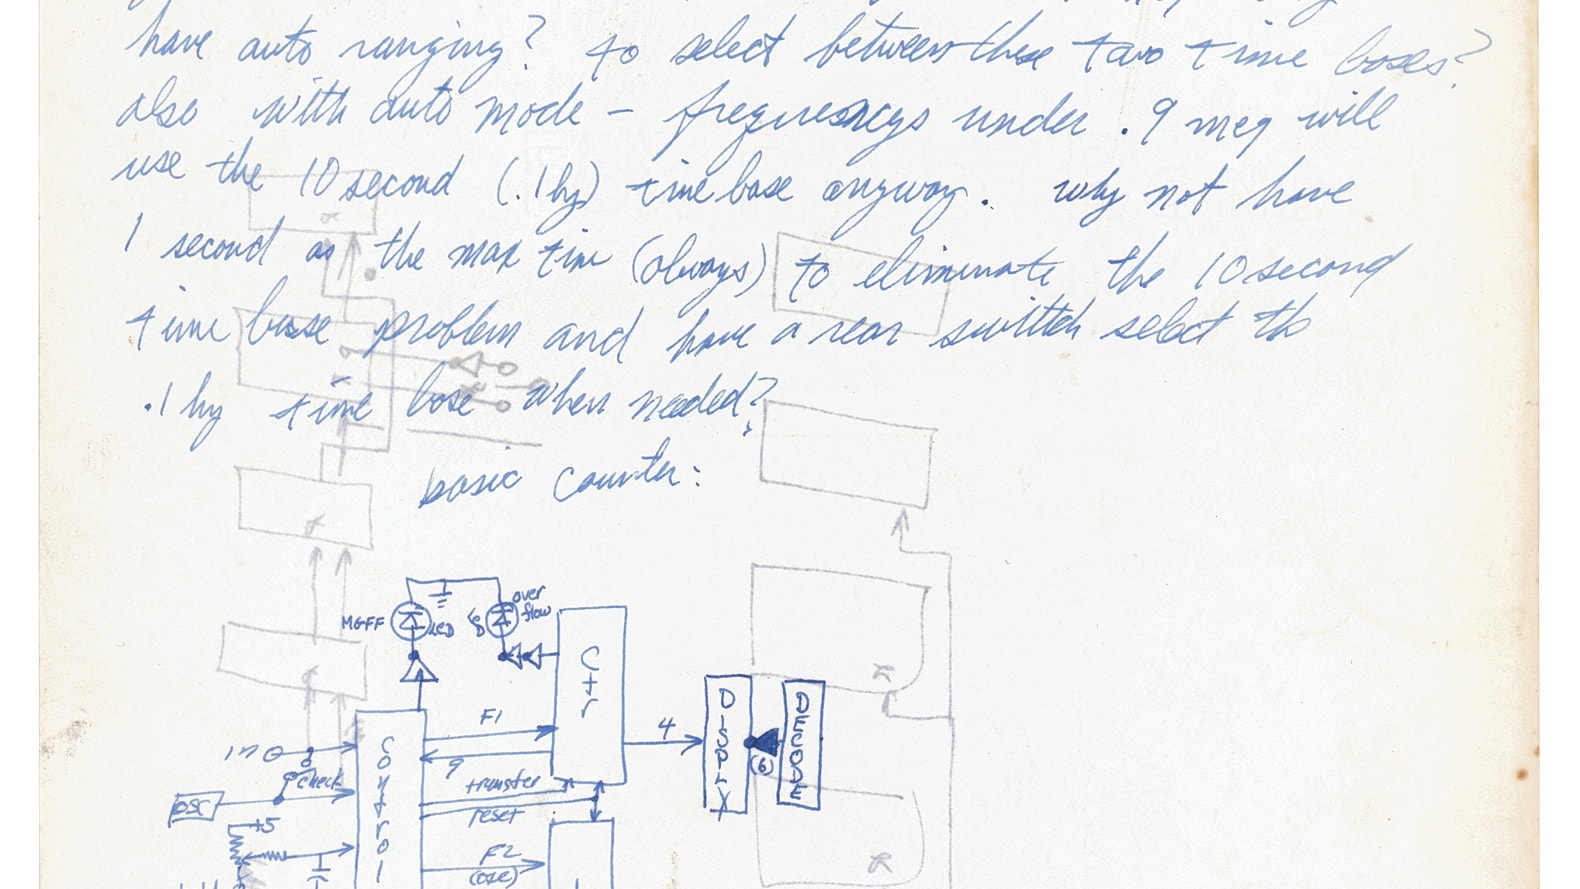 have auto ranging? to select between these two time bases?
also with auto mode - frequencys under .9 meg will
use the 10 second (.1hz) time base anyway. why not have
1 second as the max time (always) to eliminate the 10 second
time base problem and have a rear switch select th
.1 hz time base when needed?
basic counter:
over
flow
MGFF
LED
Ctr
F1
4
9
in
check
transfer
reset
OSC
+5
Control
F2
(osc)
(6)